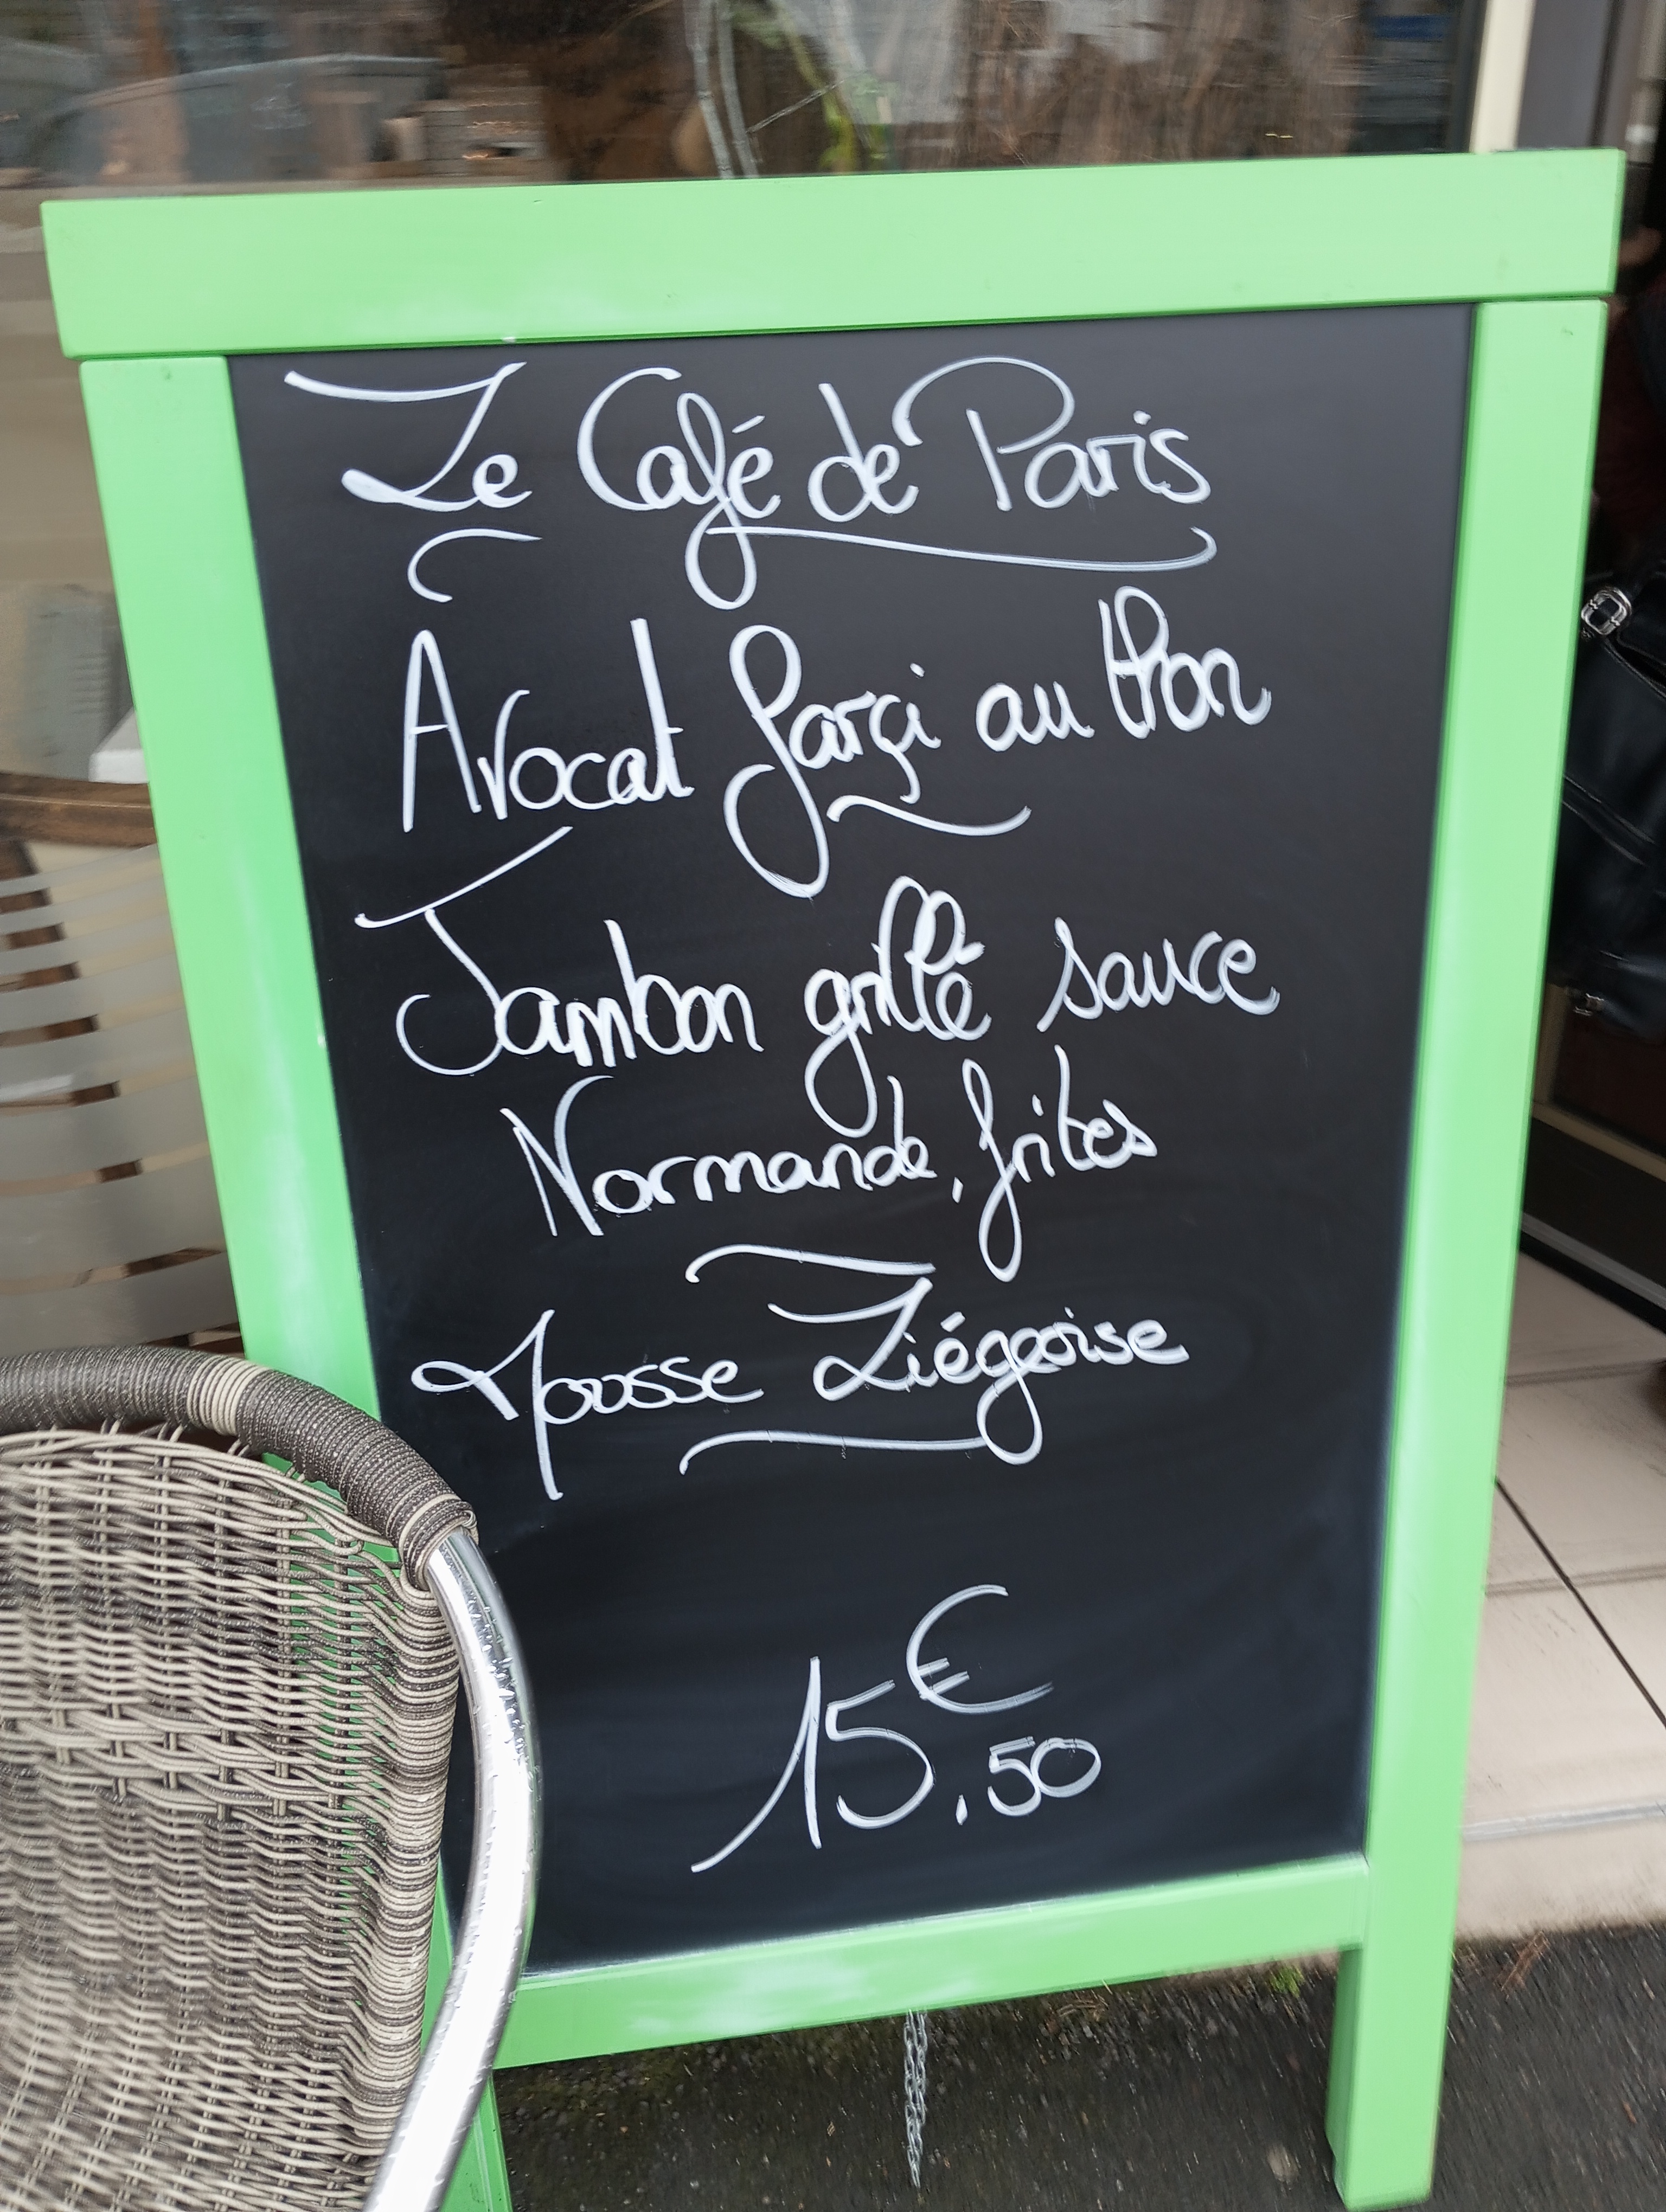 Le Café de Paris
Avocat farçi au thon
Jambon grillé sauce
Normande, frites
Mousse Liégeoise
15,50 €